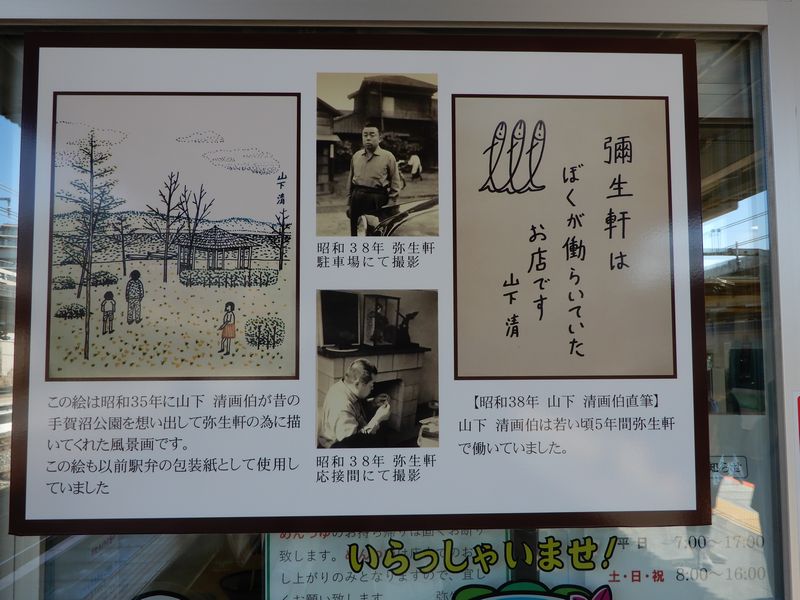 山下 清
この絵は昭和35年に山下 清画伯が昔の
手賀沼公園を想い出して弥生軒の為に描
いてくれた風景画です。
この絵も以前駅弁の包装紙として使用し
ていました
昭和38年 弥生軒
駐車場にて撮影
昭和38年 弥生軒
応接間にて撮影
彌生軒は
ぼくが働らいていた
お店です
山下 清
【昭和38年 山下 清画伯直筆】
山下 清画伯は若い頃5年間弥生軒
で働いていました。
めんつゆのお持ち帰りは固くお断り
致します。
し上がりのみとなりますので、宜し
くお願い致します。
いらっしゃいませ!
平 日 7:00～17:00
土・日・祝 8:00～16:00